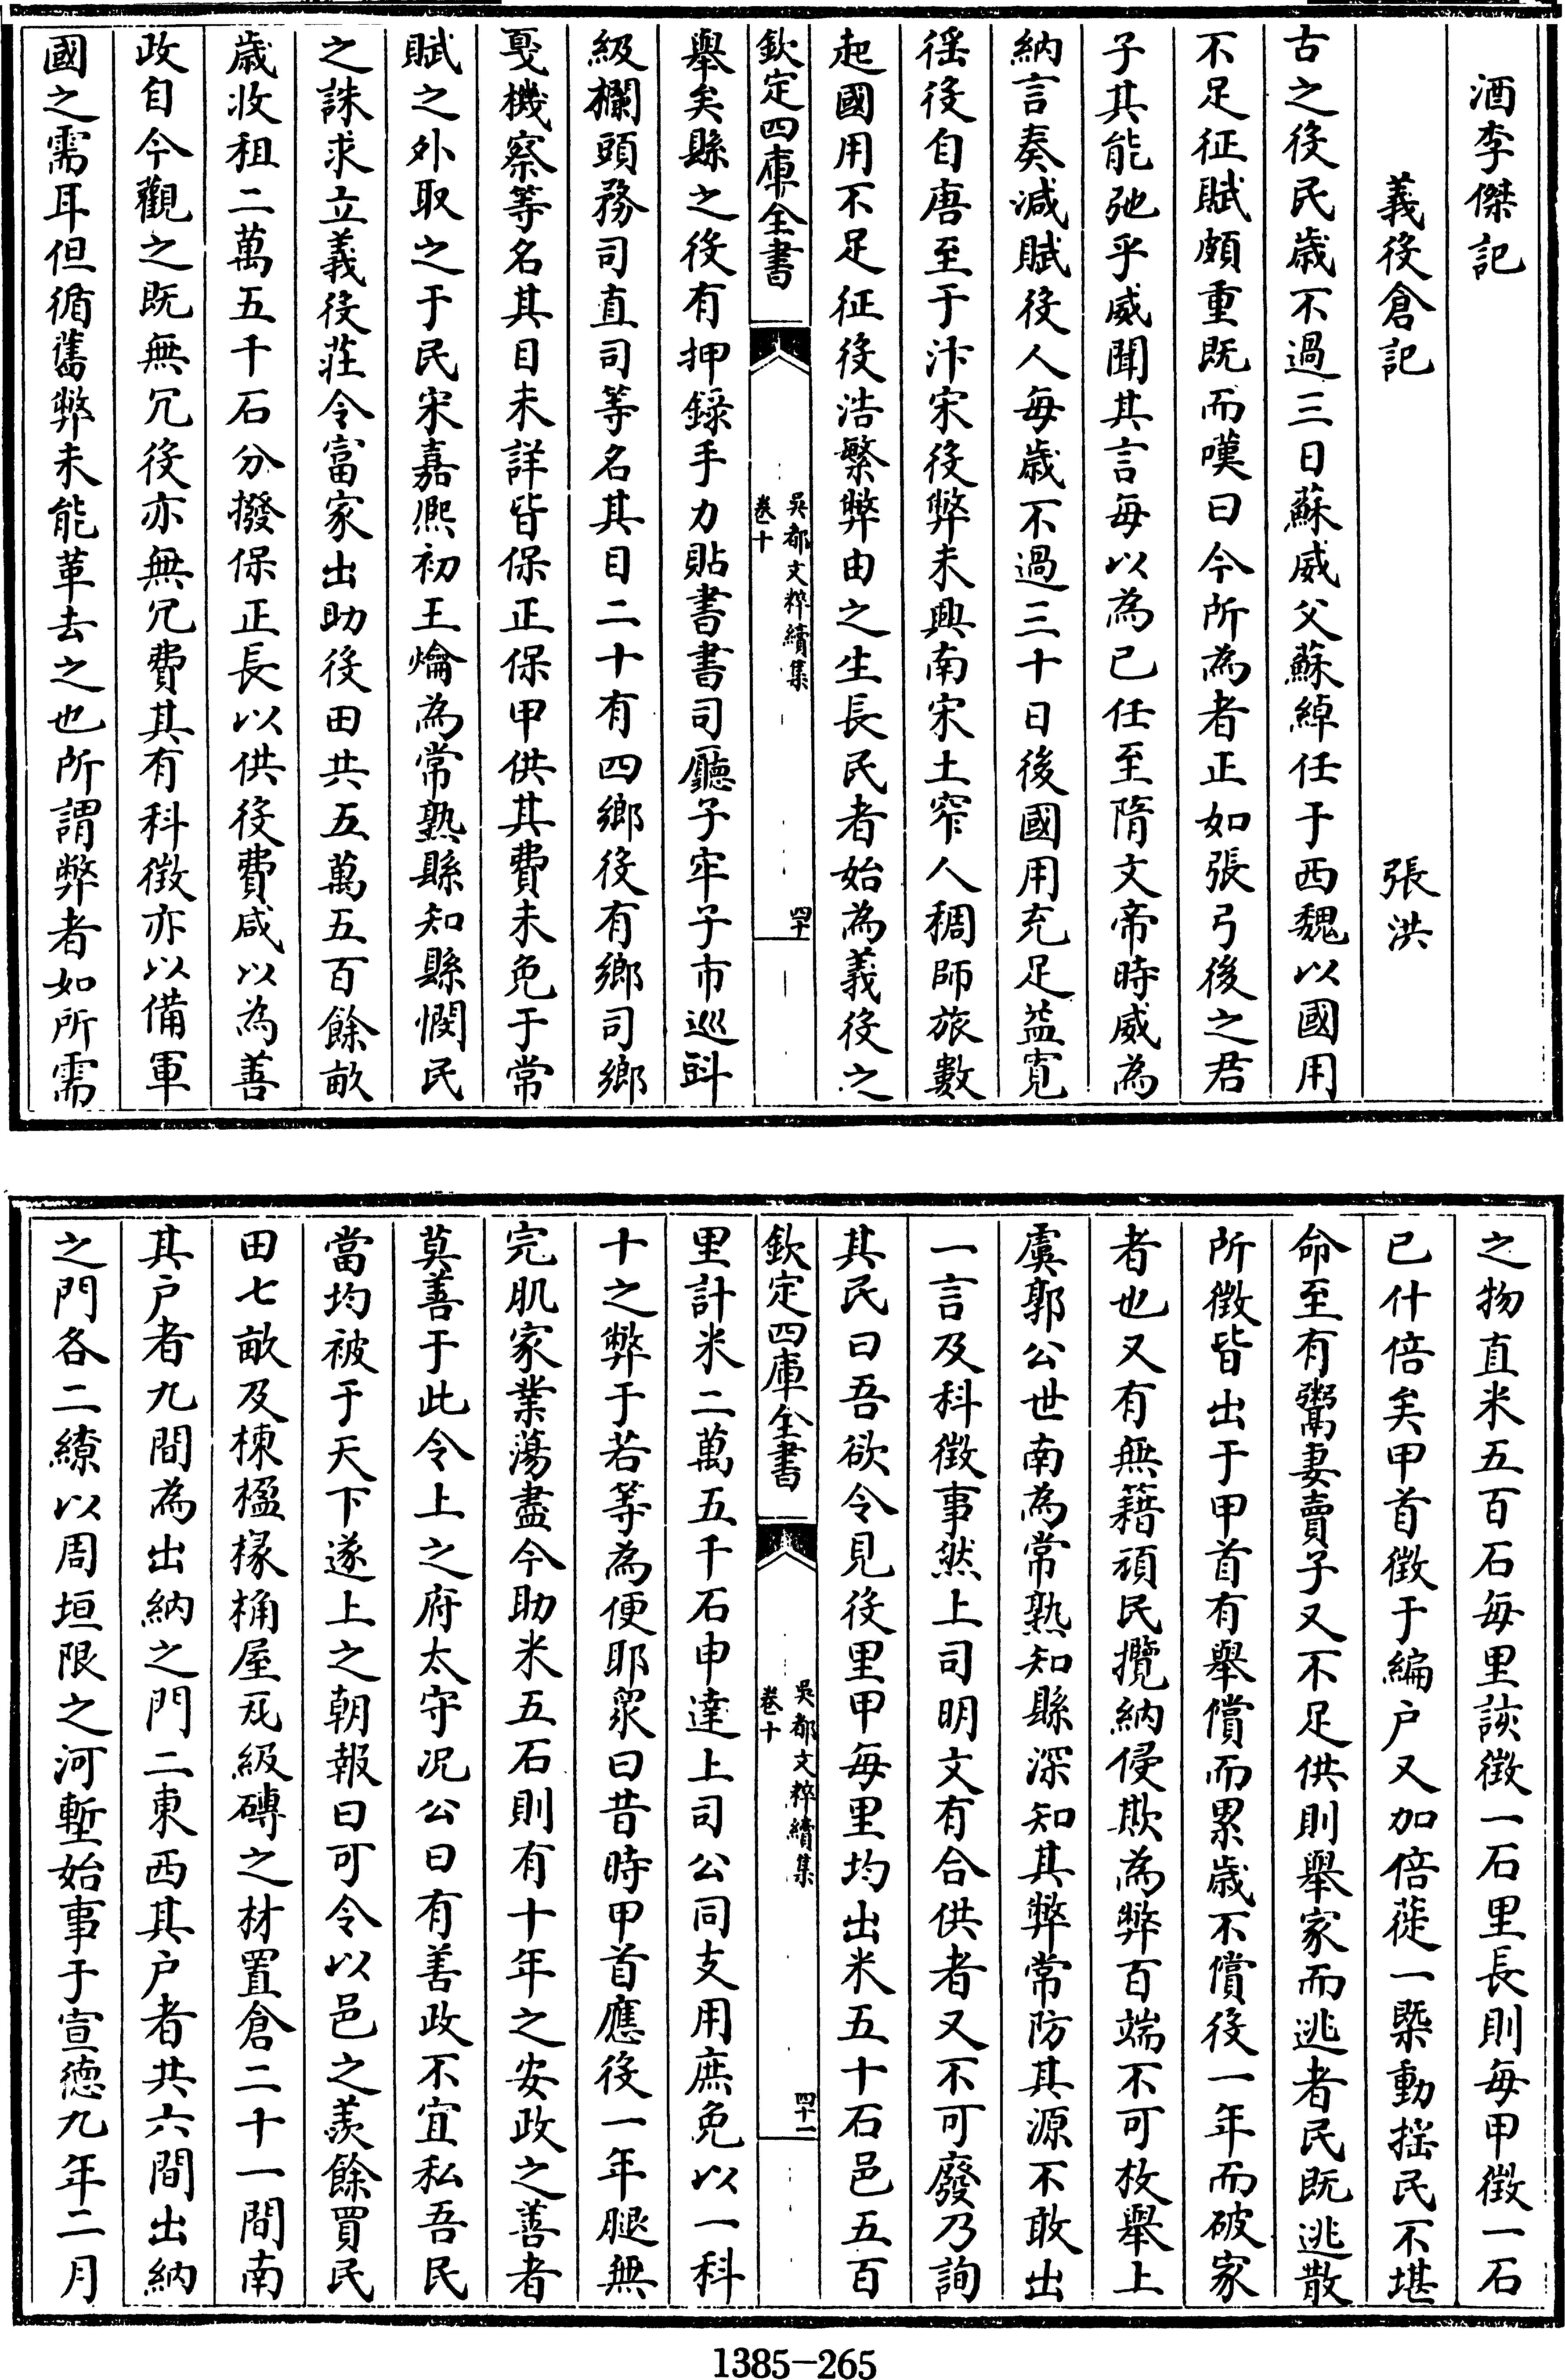 酒李傑記
義役倉記　張洪
古之役民歲不過三日蘇威父蘇綽任于西魏以國用
不足征賦頗重既而嘆曰今所為者正如張弓後之君
子其能弛乎威聞其言每以為已任至隋文帝時威為
納言奏減賦役人每歲不過三十日後國用充足益寛
徭役自唐至于汴宋役弊未興南宋土窄人稠師旅數
起國用不足征役浩繁弊由之生長民者始為義役之
欽定四庫全書
吳都文粹續集
卷十
四十
舉矣縣之役有押錄手力貼書書司廳子牢子市巡㪷
級欄頭務司直司等名其目二十有四鄉役有鄉司鄉
戞機察等名其目未詳皆保正保甲供其費未免于常
賦之外取之于民宋嘉熈初王爚為常熟縣知縣憫民
之誅求立義役莊令富家出助役田共五萬五百餘畝
歲收租二萬五千石分撥保正長以供役費咸以為善
政自今觀之既無冗役亦無冗費其有科徴亦以備軍
國之需耳但循舊弊未能革去之也所謂弊者如所需
之物直米五百石每里該徴一石里長則每甲徴一石
已什倍矣甲首徴于編户又加倍蓰一槩動揺民不堪
命至有鬻妻賣子又不足供則舉家而逃者民既逃散
所徴皆出于甲首有舉償而累歲不償役一年而破家
者也又有無籍頑民攬納侵欺為弊百端不可枚舉上
虞郭公世南為常熟知縣深知其弊常防其源不敢出
一言及科徴事然上司明文有合供者又不可廢乃詢
其民曰吾欲令見役里甲每里均出米五十石邑五百
欽定四庫全書
吳都文粹續集
卷十
四十一
里計米二萬五千石申達上司公同支用庶免以一科
十之弊于若等為便耶衆曰昔時甲首應役一年腿無
完肌家業蕩盡今助米五石則有十年之安政之善者
莫善于此令上之府太守况公曰有善政不宜私吾民
當均被于天下遂上之朝報曰可令以邑之羨餘買民
田七畝及棟楹椽桷屋㼝級磚之材置倉二十一間南
其户者九間為出納之門二東西其户者共六間出納
之門各二繚以周垣限之河塹始事于宣徳九年二月
1385-265